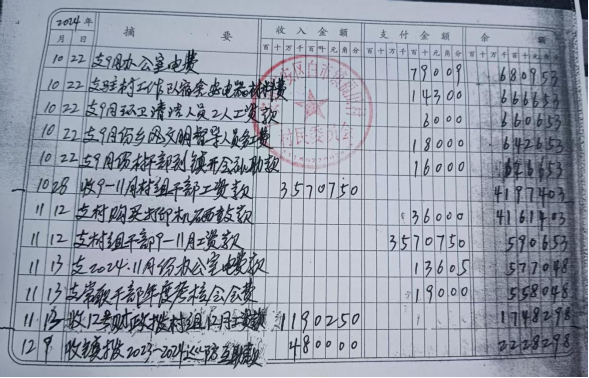 2024年 摘 要 收入金额 支付金额 余 额
月 日 百十万千百十元角分 百十万千百十元角分 百十万千百十元角分
10 22 支9月办公室电费 79009 680953
10 22 支驻村工作队宿舍 电器材料费 14300 666653
10 22 支9月环卫清洁人员2人工资款 6000 660653
10 22 支9月份乡风文明督导人员务工费 18000 642653
10 22 支9月份村干部到镇开会补助款 16000 626653
10 28 收9-11月村组干部工资款 3570750 4197403
11 12 支村购买打印机硒鼓款 36000 4161403
11 12 支村组干部9-11月工资款 3570750 590653
11 13 支2024.11月份办公室电费款 13605 577048
11 13 支常职干部年度考核会会费 19000 558048
11 13 收12号财政拨村组12月工资款 1190250 1748298
12 9 收镇拨2023-2024 防互助款 480000 2228298
村民委员会